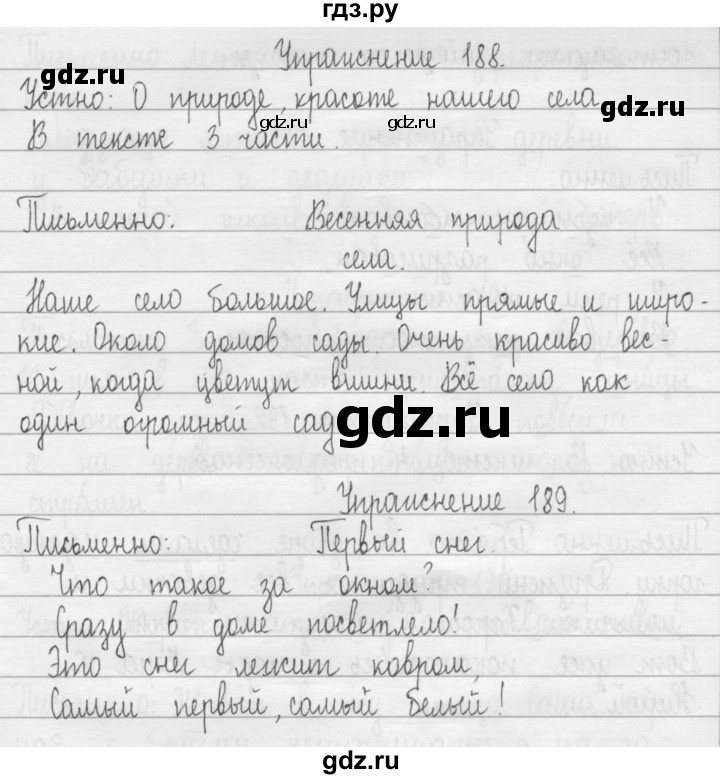 гдз.ру
Упражнение 188.
gdz.ru
Устно: О природе, красоте нашего села
gdz.ru
gdz.ru gdz.ru
В тексте 3 части.
Письменно: Весенняя природа
села.
Наше село большое. Улицы прямые и широ-
кие. Около домов сады. Очень красиво вес-
ной, когда цветут вишни. Всё село как
один огромный сад
gdz.ru
Упражнение 189.
Письменно: Первый снег.
Что такое за окном?
Сразу в доме посветлело!
Это снег лежит ковром,
Самый первый, самый белый!
gdz.ru